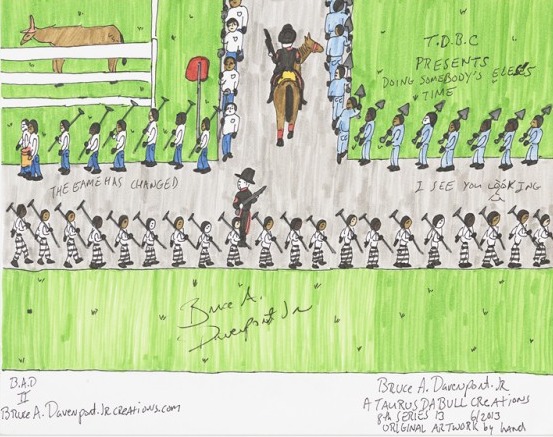 T.D.B.C
PRESENTS
DOING SOMEBODY'S ELESES
TIME
THE GAME HAS CHANGED
I SEE YOU LOOKING
Bruce A.
Davenport Jr
B.A.D
II
Bruce A. Davenport.Jr creations.com
Bruce A. Davenport.Jr
A TAURUS DA BULL Creations
8th SERIES 13 6/2013
ORIGINAL ARTWORK by hand